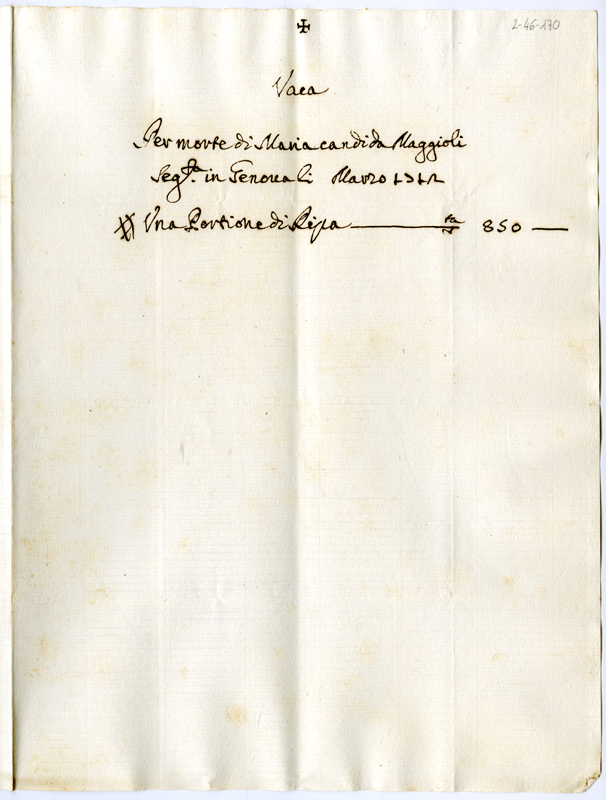 ✠
2-46-170
Vaca
Per morte di Maria candida Maggioli
Seg.ta in Genova li Marzo
Una Portione di Ripa ta 850